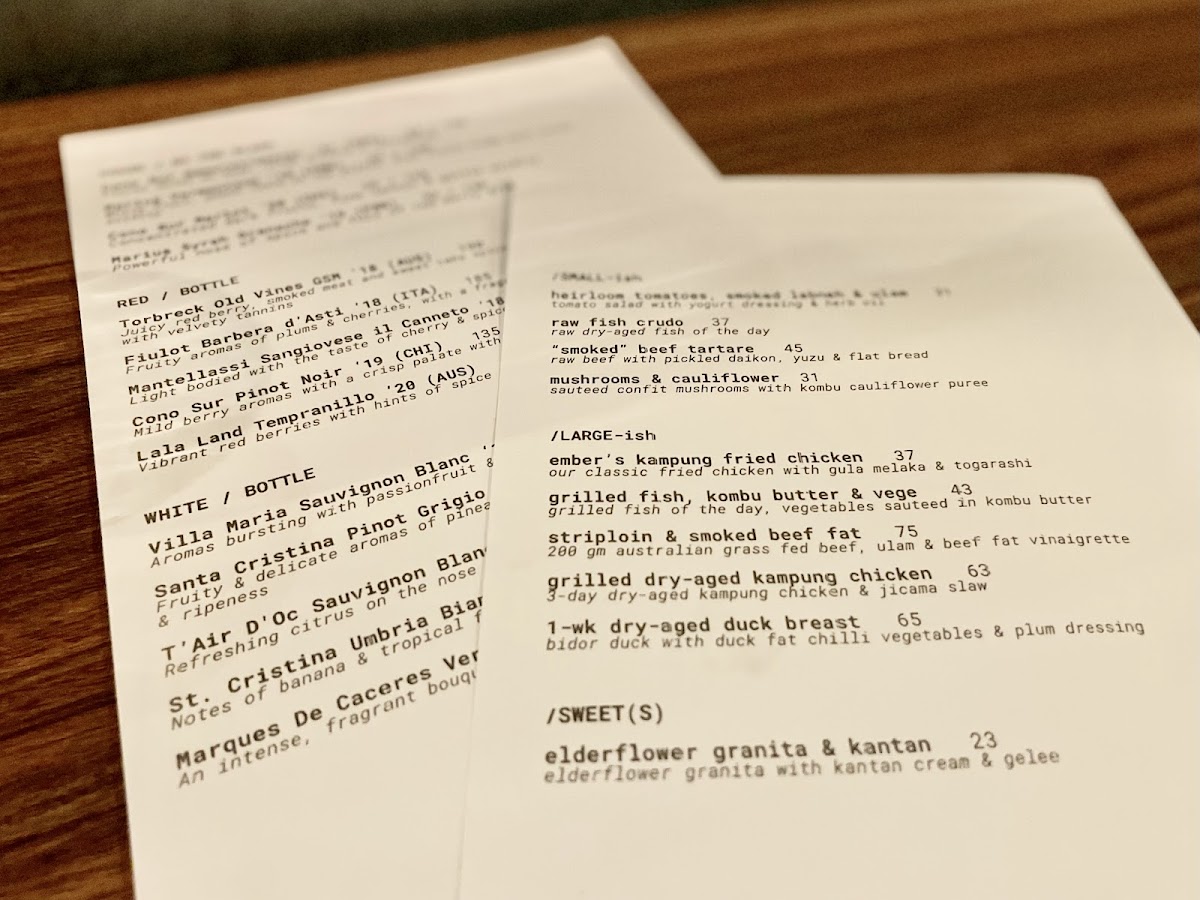 Marius Syrah Grenache
Powerful nose of
RED / BOTTLE
Torbreck Old Vines GSM '18 (AUS)
Juicy red berry, smoked meat and sweet
with velvety tannins
Fiulot Barbera d'Asti '18 (ITA) 155
Fruity aromas of plums & cherries, with a
Mantellassi Sangiovese il Canneto '18
Light bodied with the taste of cherry &
Cono Sur Pinot Noir '19 (CHI) 135
Mild berry aromas with a crisp palate with
Lala Land Tempranillo '20 (AUS)
Vibrant red berries with hints of spice
WHITE / BOTTLE
Villa Maria Sauvignon Blanc
Aromas bursting with passionfruit &
Santa Cristina Pinot Grigio
Fruity & delicate aromas of
& ripeness
T'Air D'Oc Sauvignon
Refreshing citrus on the nose
St. Cristina Umbria
Notes of banana & tropical
Marques De Caceres
An intense, fragrant
/SMALL-ish
heirloom tomatoes, smoked labneh & ulam
tomato salad with yogurt dressing & herb oil
raw fish crudo 37
raw dry-aged fish of the day
“smoked” beef tartare 45
raw beef with pickled daikon, yuzu & flat bread
mushrooms & cauliflower 31
sauteed confit mushrooms with kombu cauliflower puree
/LARGE-ish
ember's kampung fried chicken 37
our classic fried chicken with gula melaka & togarashi
grilled fish, kombu butter & vege 43
grilled fish of the day, vegetables sauteed in kombu butter
striploin & smoked beef fat 75
200 gm australian grass fed beef, ulam & beef fat vinaigrette
grilled dry-aged kampung chicken 63
3-day dry-aged kampung chicken & jicama slaw
1-wk dry-aged duck breast 65
bidor duck with duck fat chilli vegetables & plum dressing
/SWEET(S)
elderflower granita & kantan 23
elderflower granita with kantan cream & gelee